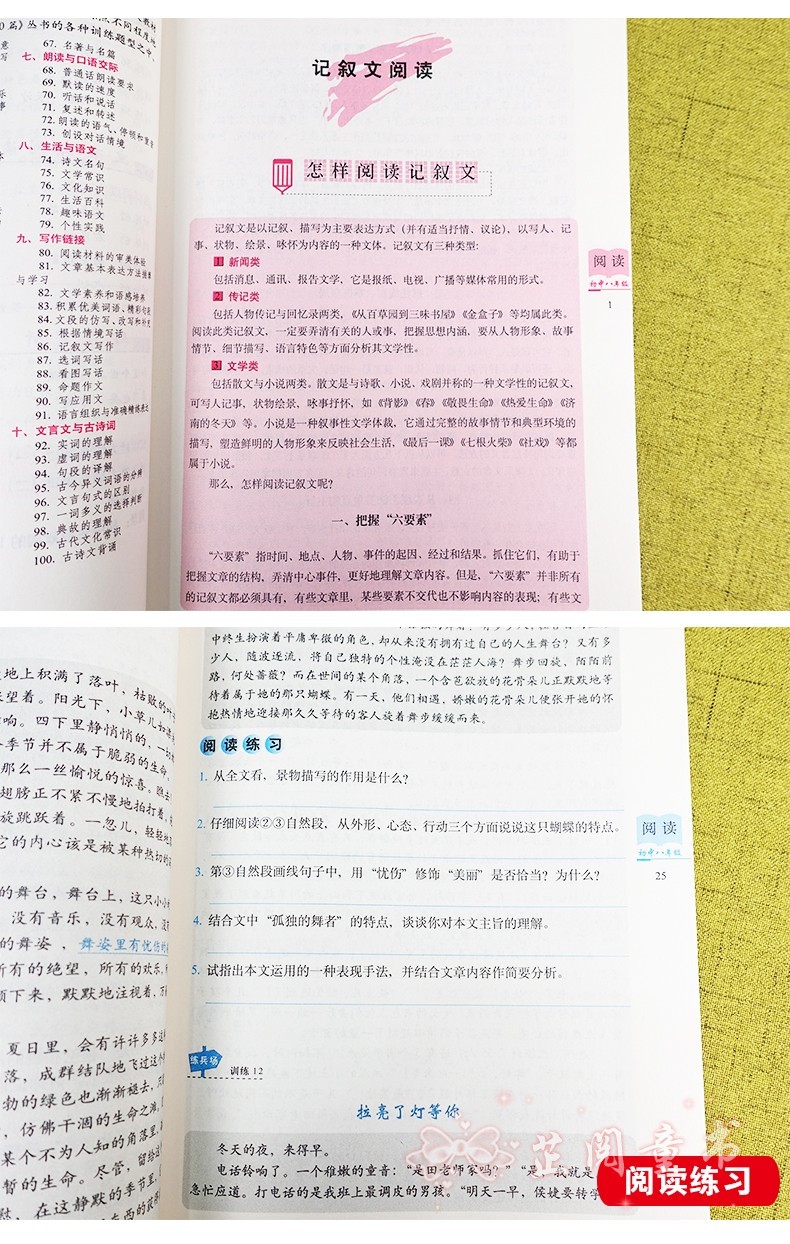 丛书的各种训练题型之中,
67. 名著与名篇
七、朗读与口语交际
68. 普通话朗读要求
69. 默读的速度
70. 听话和说话
71. 复述和转述
72. 朗读的语气、停顿和重音
73. 创设对话情境
八、生活与语文
74. 诗文名句
75. 文学常识
76. 文化知识
77. 生活百科
78. 趣味语文
79. 个性实践
九、写作链接
80. 阅读材料的审美体验
81. 文章基本表达方法提炼
与学习
82. 文学素养和语感培养
83. 积累优美词语、精彩句段
84. 文段的仿写、改写和补充
85. 根据情境写话
86. 记叙文写作
87. 选词写话
88. 看图写话
89. 命题作文
90. 写应用文
91. 语言组织与准确精炼表达
十、文言文与古诗词
92. 实词的理解
93. 虚词的理解
94. 句段的译解
95. 古今异义词语的分辨
96. 文言句式的区别
97. 一词多义的选择判断
98. 典故的理解
99. 古代文化常识
100. 古诗文背诵
记叙文阅读
怎样阅读记叙文
记叙文是以记叙、描写为主要表达方式（并有适当抒情、议论）、以写人、记
事、状物、绘景，咏怀为内容的一种文体。记叙文有三种类型:
1 新闻类
包括消息、通讯、报告文学，它是报纸、电视、广播等媒体常用的形式。
2 传记类
包括人物传记与回忆录两类，《从百草园到三味书屋》《金盒子》等均属此类。
阅读此类记叙文，一定要弄清有关的人或事，把握思想内涵，要从人物形象、故事
情节、细节描写、语言特色等方面分析其文学性。
3 文学类
包括散文与小说两类。散文是与诗歌、小说、戏剧并称的一种文学性的记叙文，
可写人记事，状物绘景，咏事抒怀，如《背影》《春》《敬畏生命》《热爱生命》《济
南的冬天》等。小说是一种叙事性文学体裁，它通过完整的故事情节和典型环境的
描写，塑造鲜明的人物形象来反映社会生活，《最后一课》《七根火柴》《社戏》等都
属于小说。
那么，怎样阅读记叙文呢?
一、把握“六要素”
“六要素”指时间、地点、人物、事件的起因、经过和结果。抓住它们，有助于
把握文章的结构，弄清中心事件，更好地理解文章内容。但是，“六要素”并非所有
的记叙文都必须具有，有些文章里，某些要素不交代也不影响内容的表现；有些文
阅读
初中八年级
1
地上积满了落叶，枯败的叶
望着。阳光下，小草儿如
响。四下里静悄悄的，一切
季节并不属于脆弱的生命，
那么一丝愉悦的惊喜。瞧
翅膀正不紧不慢地拍打着，
旋跳跃着。一忽儿，轻轻地
它的内心该是被某种热切的
的舞台，舞台上，这只小小
没有音乐，没有观众，没
的舞姿，舞姿里有忧伤的
所有的绝望，所有的欢乐，
顷下来，默默地注视着，万
夏日里，会有许许多多这
落，成群结队地飞过这个
勃的绿色也渐渐褪去，只
仿佛干涸的生命之滩，
某个不为人知的角落里，
暂的生命。尽管，留给这
在这静默的季节里，
中终生扮演着平庸卑微的角色，却从来没有拥有过自己的人生舞台？又有多
少人，随波逐流，将自己独特的个性淹没在茫茫人海？舞步回旋，陌陌前
路，何处蔷薇？而在世间的某个角落，一个含苞欲放的花骨朵儿正默默地等
待着属于她的那只蝴蝶。有一天，他们相遇，娇嫩的花骨朵儿便张开她的怀
抱热情地迎接那久久等待的客人旋着舞步缓缓而来。
阅读练习
1. 从全文看，景物描写的作用是什么?
2. 仔细阅读②③自然段，从外形、心态、行动三个方面说说这只蝴蝶的特点。
3. 第③自然段画线句子中，用“忧伤”修饰“美丽”是否恰当？为什么?
4. 结合文中“孤独的舞者”的特点，谈谈你对本文主旨的理解。
5. 试指出本文运用的一种表现手法，并结合文章内容作简要分析。
阅读
初中八年级
25
练兵场
训练 12
拉亮了灯等你
冬天的夜，来得早。
电话铃响了。一个稚嫩的童音：“是田老师家吗？”“是，我就是
急忙应道。打电话的是我班上最调皮的男孩。“明天一早，侯婕要转学
芷阅童书
阅读练习